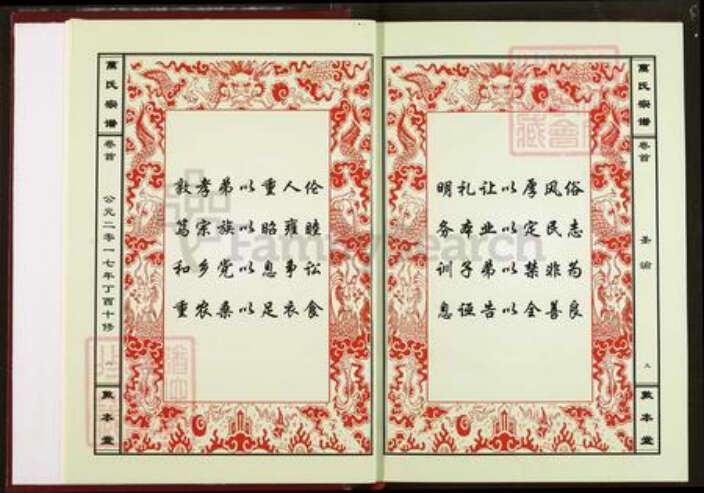 萬氏宗谱
卷首
公元二零一七年丁酉十修
敦本堂
敦孝弟以重人伦
笃宗族以昭雍睦
和乡党以息争讼
重农桑以足衣食
明礼让以厚风俗
务本业以定民志
训子弟以禁非为
息诬告以全善良
萬氏宗谱
卷首
圣谕
九
敦本堂
FamilySearch